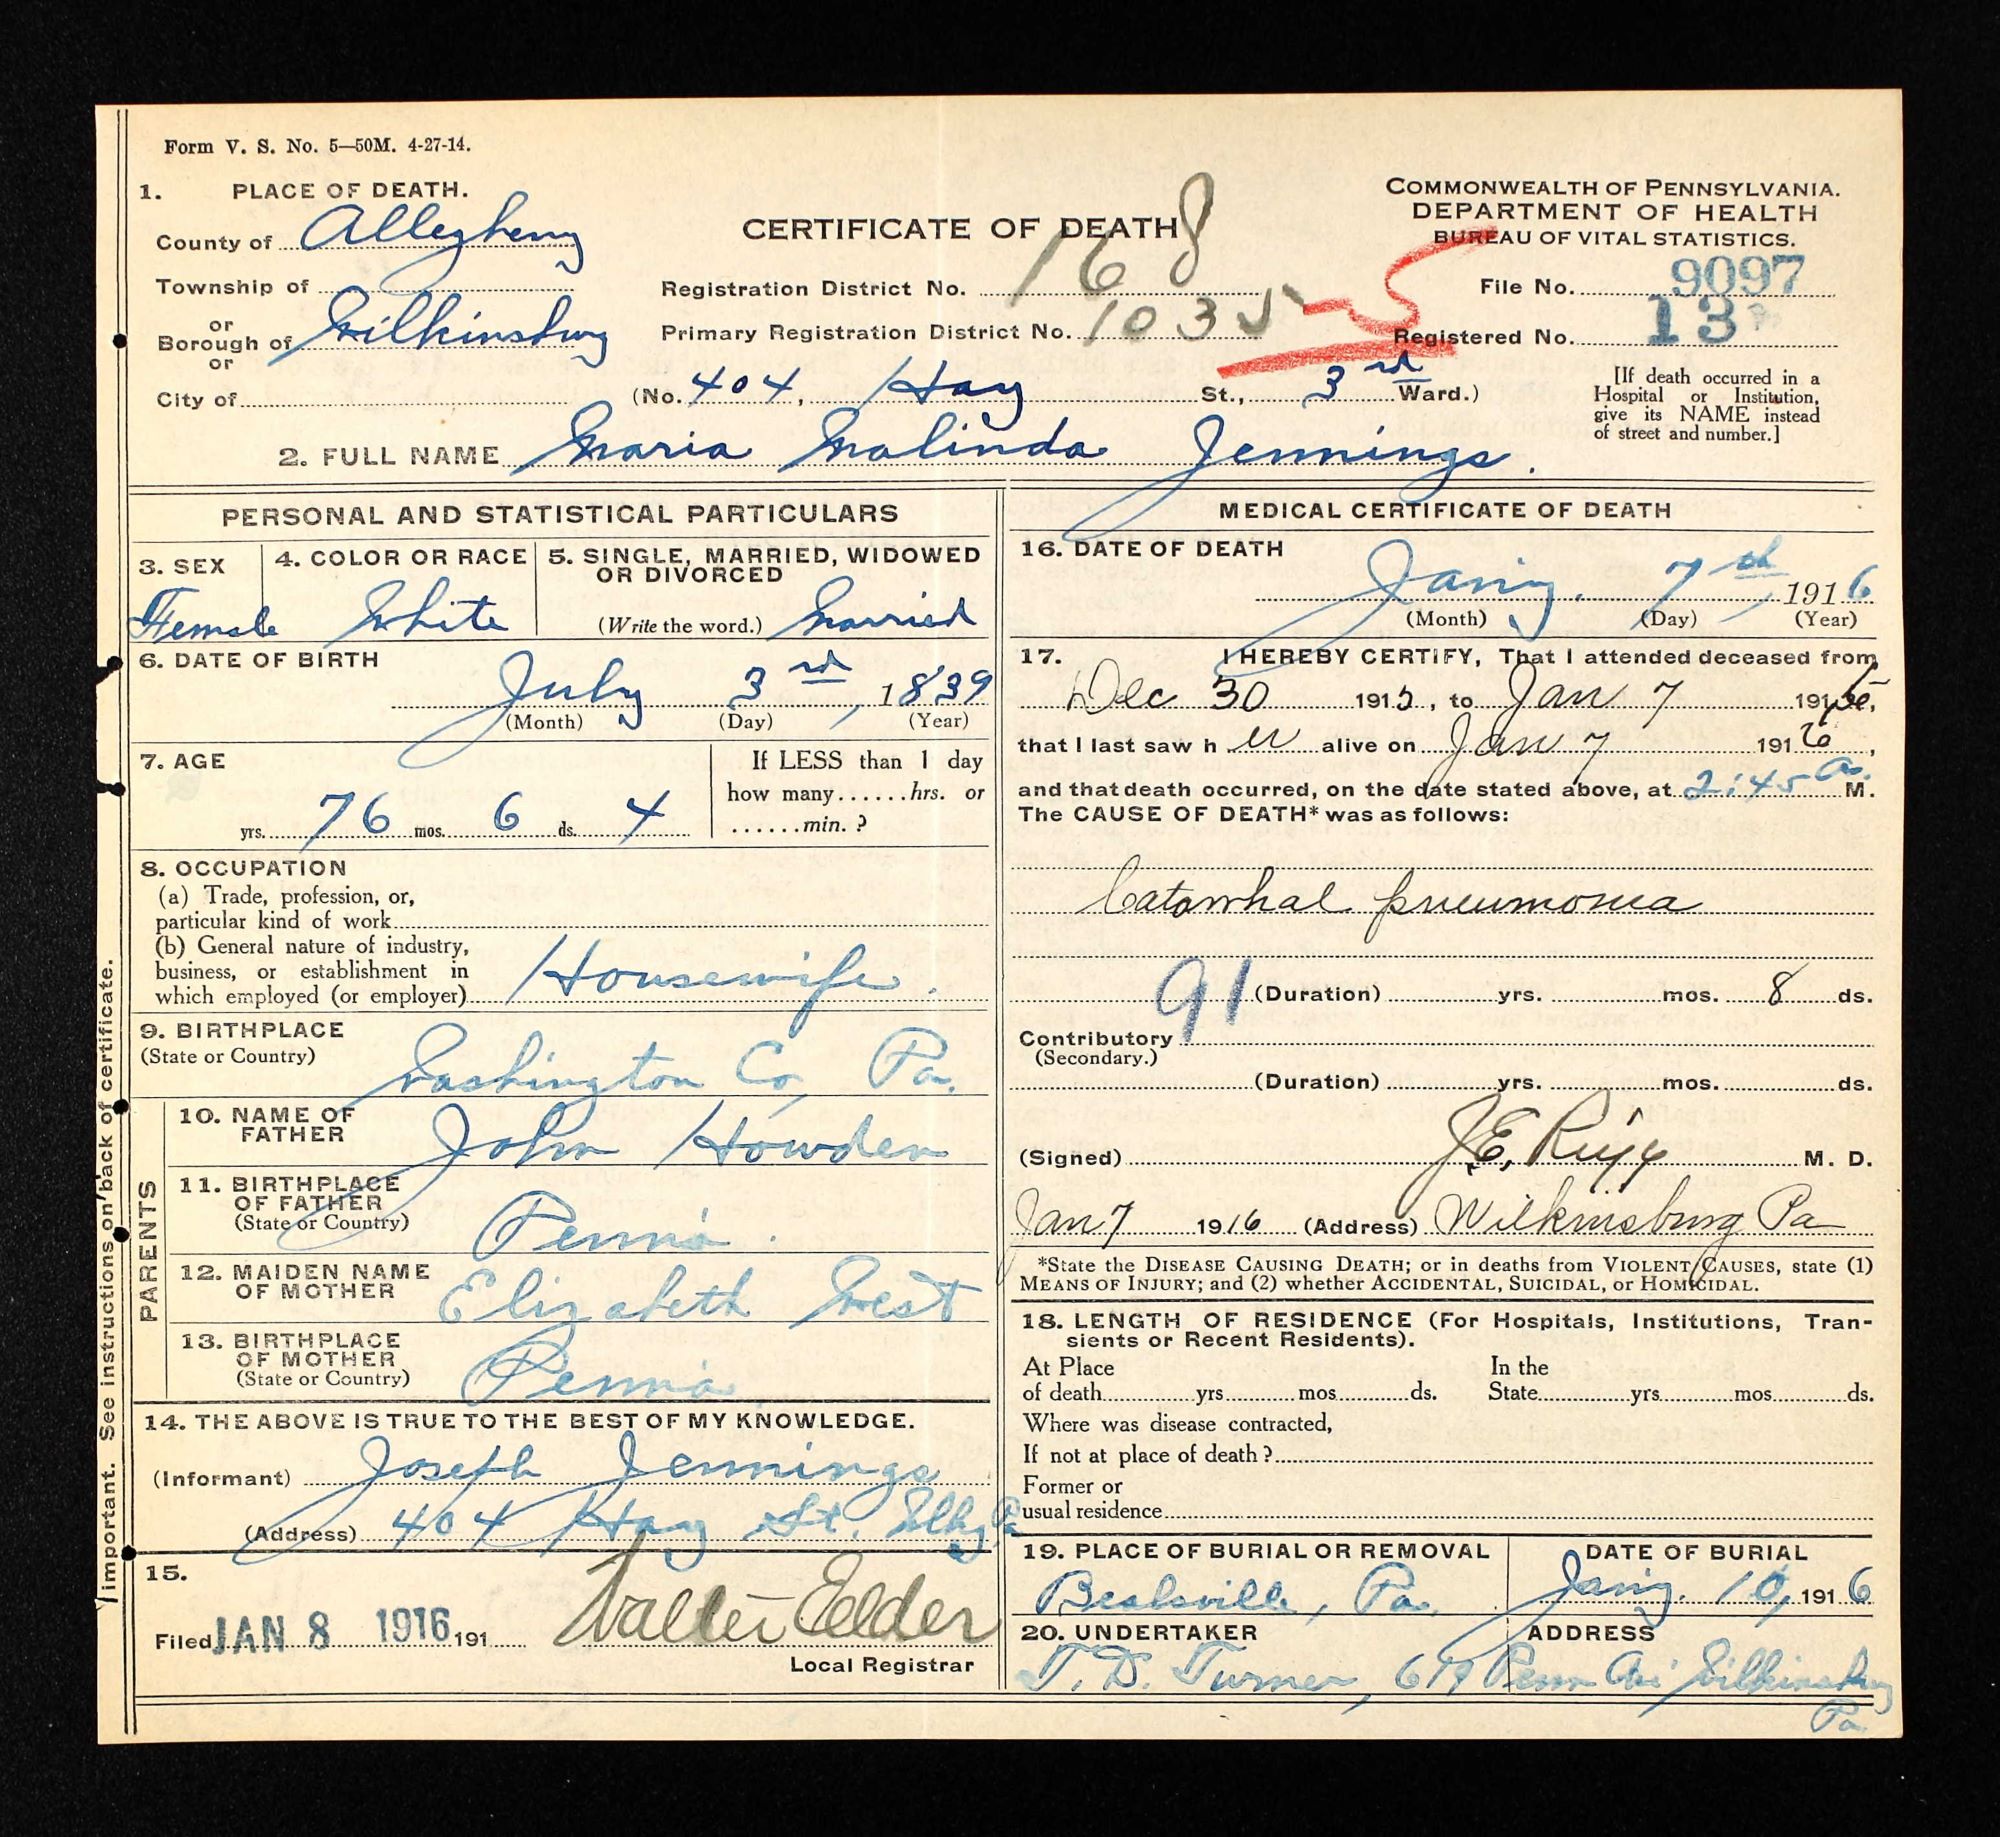 Form V. S. No. 5—50M. 4-27-14.
1. PLACE OF DEATH.
County of Allegheny
Township of
or
Borough of Wilkinsburg
or
City of
CERTIFICATE OF DEATH
Registration District No. 168
Primary Registration District No. 1035
(No. 404, Hay St., 3rd Ward.)
COMMONWEALTH OF PENNSYLVANIA.
DEPARTMENT OF HEALTH
BUREAU OF VITAL STATISTICS.
File No. 9097
Registered No. 13
[If death occurred in a
Hospital or Institution,
give its NAME instead
of street and number.]
2. FULL NAME Maria Malinda Jennings.
PERSONAL AND STATISTICAL PARTICULARS
3. SEX
Female
4. COLOR OR RACE
White
5. SINGLE, MARRIED, WIDOWED
OR DIVORCED
(Write the word.) Married
6. DATE OF BIRTH
July 3rd, 1839
(Month) (Day) (Year)
7. AGE
yrs. 76 mos. 6 ds. 4
If LESS than 1 day
how many......hrs. or
......min. ?
8. OCCUPATION
(a) Trade, profession, or,
particular kind of work
(b) General nature of industry,
business, or establishment in
which employed (or employer) Housewife.
9. BIRTHPLACE
(State or Country) Washington Co, Pa.
PARENTS
10. NAME OF
FATHER John Howden
11. BIRTHPLACE
OF FATHER
(State or Country) Penna.
12. MAIDEN NAME
OF MOTHER Elizabeth West
13. BIRTHPLACE
OF MOTHER
(State or Country) Penna
14. THE ABOVE IS TRUE TO THE BEST OF MY KNOWLEDGE.
(Informant) Joseph Jennings
(Address) 404 Hay St. Wlkg Pa
15.
Filed JAN 8 1916, 191 Walter Elder
Local Registrar
important. See instructions on back of certificate.
MEDICAL CERTIFICATE OF DEATH
16. DATE OF DEATH
Jan'y. 7th, 1916
(Month) (Day) (Year)
17. I HEREBY CERTIFY, That I attended deceased from
Dec 30 1915, to Jan 7 1916,
that I last saw h er alive on Jan 7 1916,
and that death occurred, on the date stated above, at 2:45 a. M.
The CAUSE OF DEATH* was as follows:
Catarrhal pneumonia
91 (Duration) yrs. mos. 8 ds.
Contributory
(Secondary.)
(Duration) yrs. mos. ds.
(Signed) J.E. M. D.
Jan 7 1916 (Address) Wilkinsburg Pa
*State the DISEASE CAUSING DEATH; or in deaths from VIOLENT CAUSES, state (1)
MEANS OF INJURY; and (2) whether ACCIDENTAL, SUICIDAL, or HOMICIDAL.
18. LENGTH OF RESIDENCE (For Hospitals, Institutions, Tran-
sients or Recent Residents).
At Place In the
of death yrs mos ds. State yrs mos ds.
Where was disease contracted,
If not at place of death ?
Former or
usual residence
19. PLACE OF BURIAL OR REMOVAL
Beallsville, Pa.
DATE OF BURIAL
Jan'y. 10, 1916
20. UNDERTAKER
ADDRESS
T. D. Turner, 619 Penn Ave Wilkinsburg
Pa